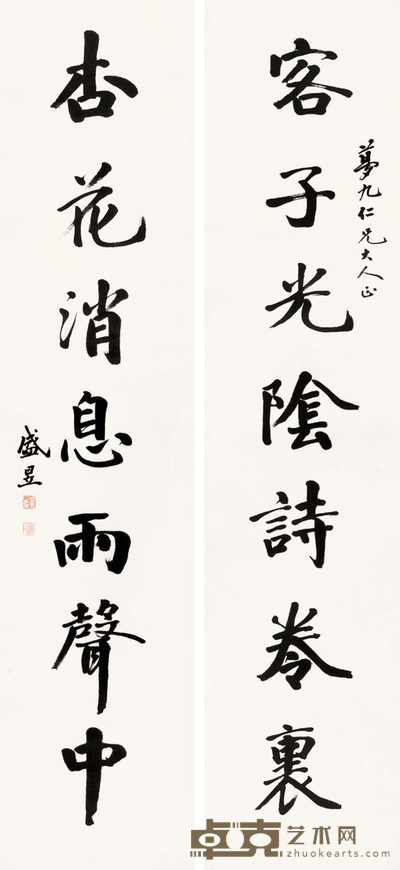 夢九仁兄大人正
客子光陰詩卷裏
杏花消息雨聲中
盛昱
卓克艺术网
zhuokearts.com